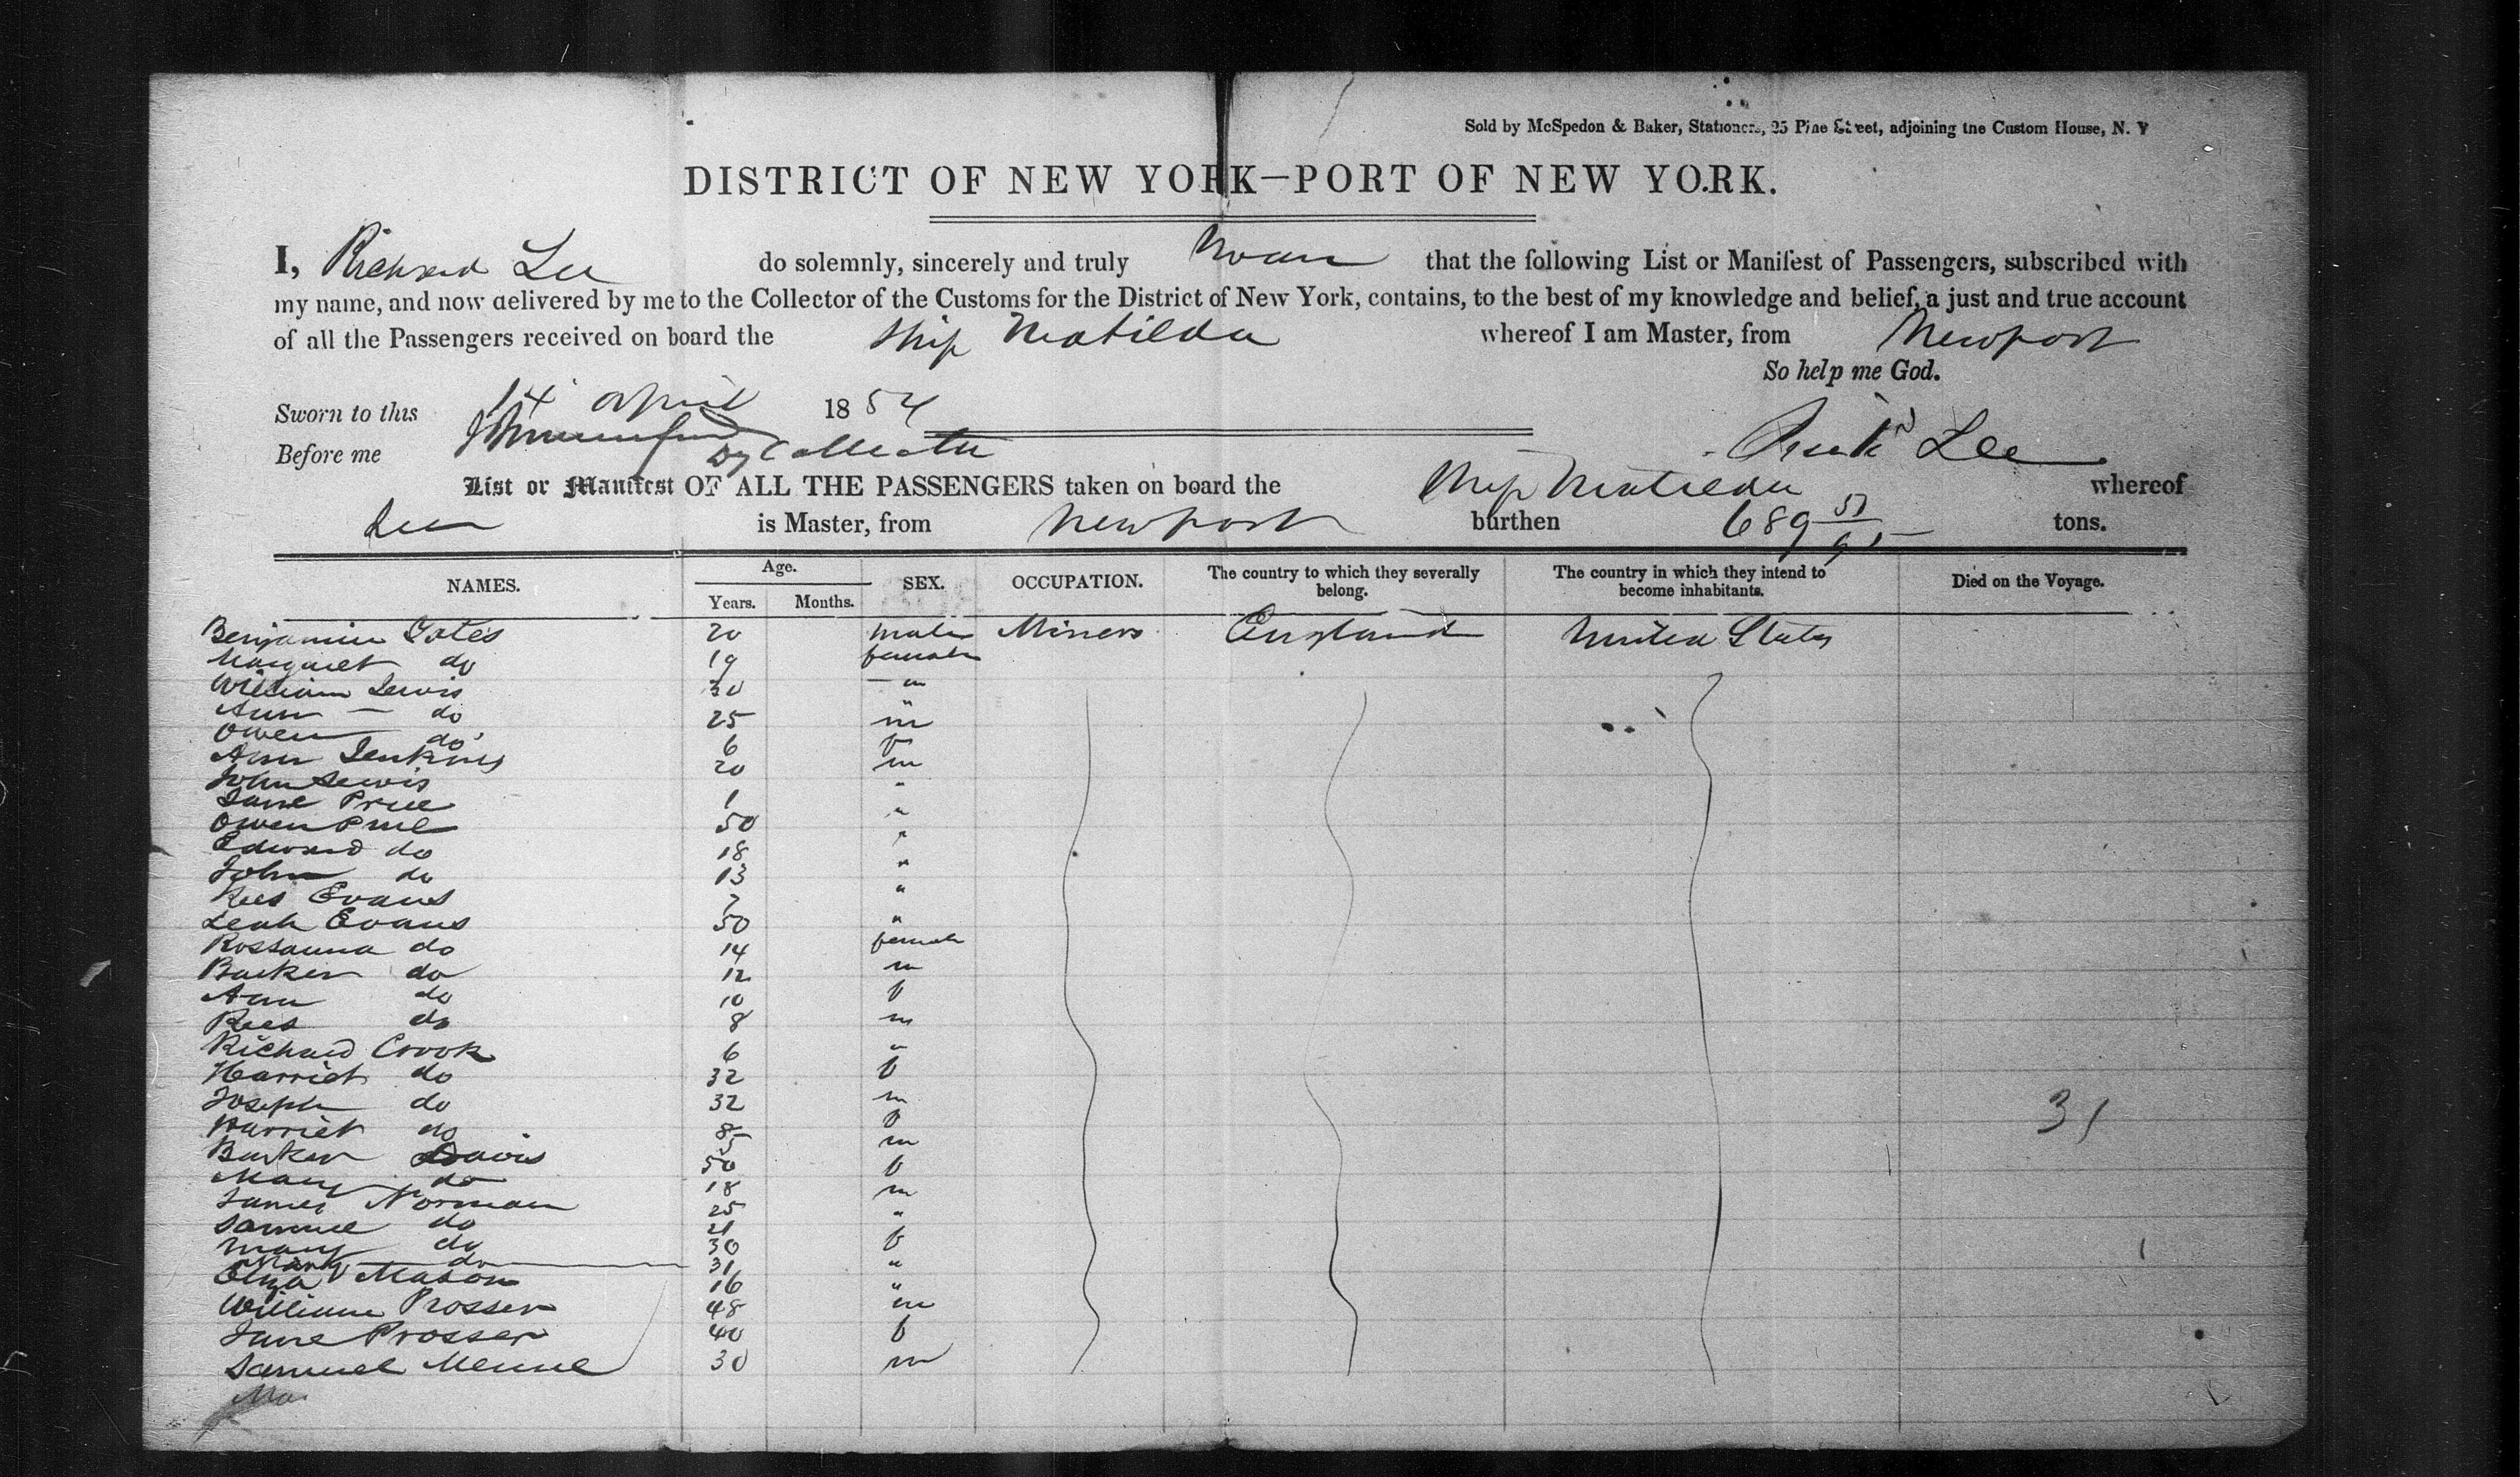 Sold by McSpedon & Baker, Stationers, 25 Pine Street, adjoining the Custom House, N. Y
DISTRICT OF NEW YORK—PORT OF NEW YORK.
I, Richard Lee do solemnly, sincerely and truly swear that the following List or Manifest of Passengers, subscribed with
my name, and now delivered by me to the Collector of the Customs for the District of New York, contains, to the best of my knowledge and belief, a just and true account
of all the Passengers received on board the Ship Matilda whereof I am Master, from Newport
So help me God.
Sworn to this 14 April 1854
Before me Dy Collector Lee
List or Manifest OF ALL THE PASSENGERS taken on board the Ship Matilda whereof
Lee is Master, from Newport burthen 689 tons.
NAMES. Age. SEX. OCCUPATION. The country to which they severally belong. The country in which they intend to become inhabitants. Died on the Voyage.
Years. Months.
Benjamin 20 male Miners England United States
Margaret do 19 female
William Lewis 30 "
Ann — do 25 m
Owen do 6 f
Ann Jenkins 20 m
John Lewis "
Jane Price 1 "
Owen Price 50 "
Edward do 18 "
John do 13 "
Rees Evans 7 "
Leah Evans 50 female
Rossanna do 14 m
do 12 f
Ann do 10 m
Rees do 8 "
Richard Crook 6 f
Harriet do 32 m
Joseph do 32 f 31
Harriet do 8 m
Davis 5 f
Mary do 50 m
James Norman 18 "
Samuel do 25 f
Mary do 21 "
Mary do 30 "
Eliza Mason 31
William Prosser 16 m
Jane Prosser 48 f
Samuel 40 m
30